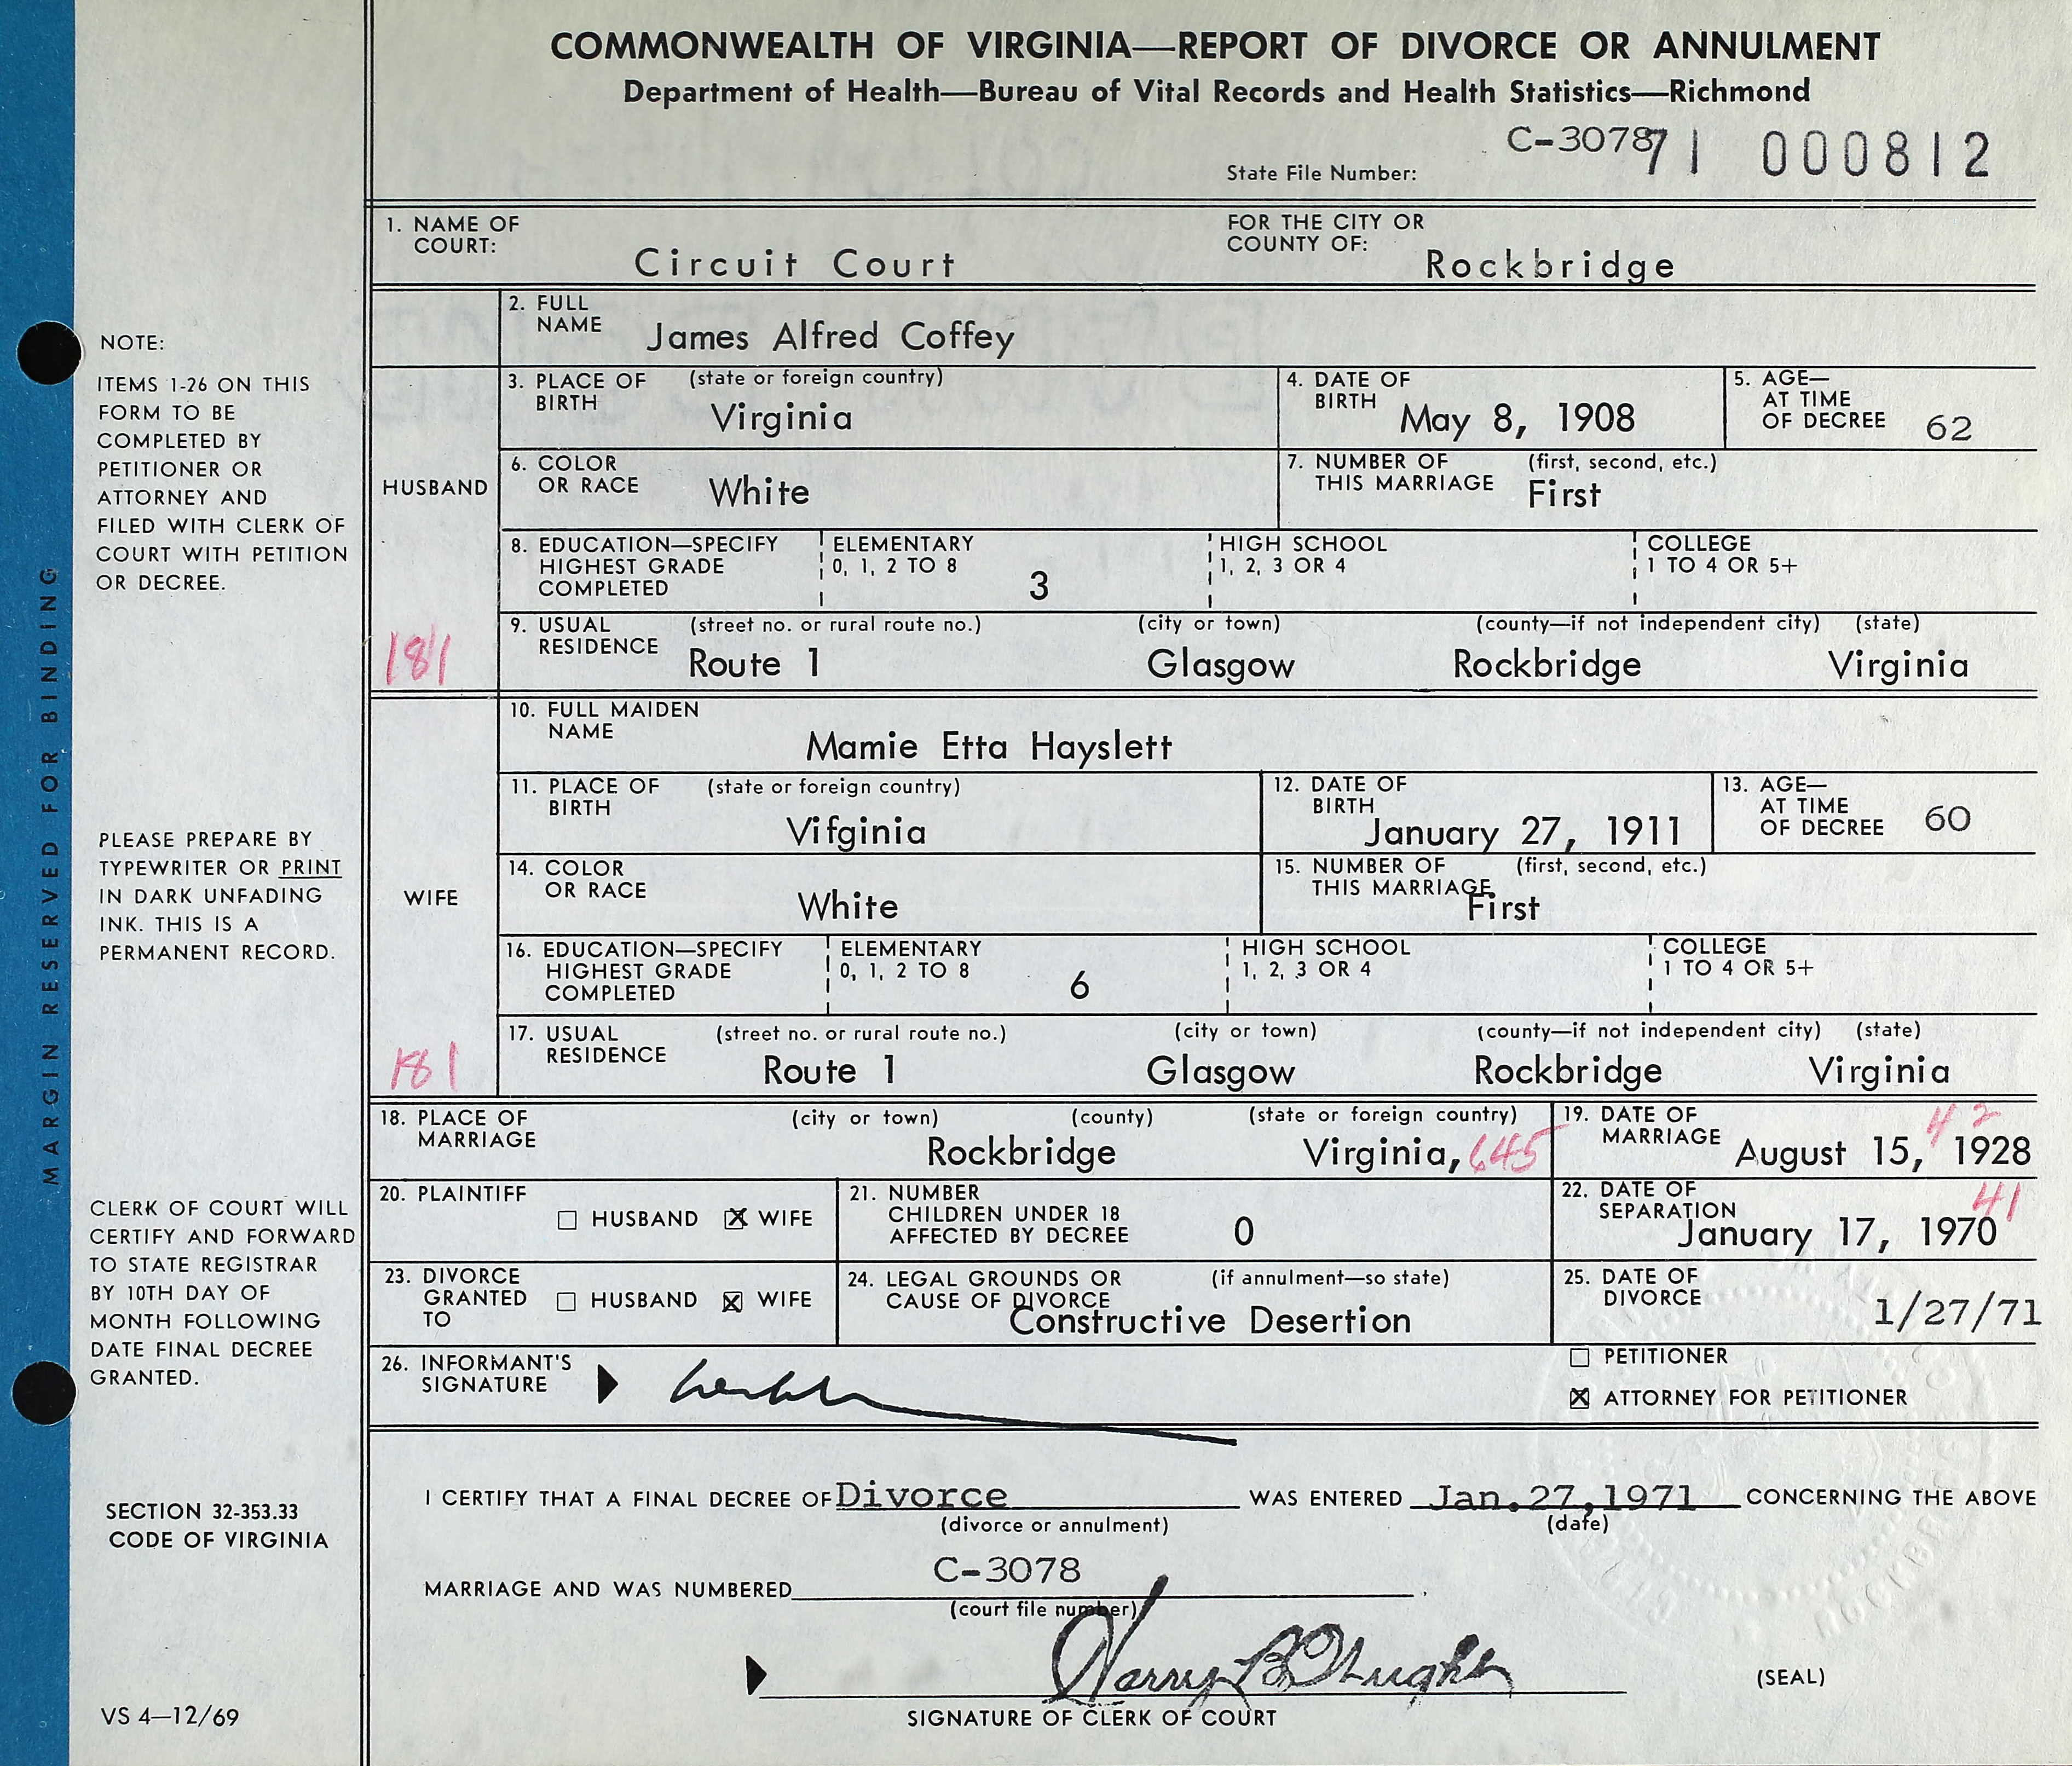 COMMONWEALTH OF VIRGINIA—REPORT OF DIVORCE OR ANNULMENT
Department of Health—Bureau of Vital Records and Health Statistics—Richmond
State File Number: C-3078 71 000812
1. NAME OF COURT: Circuit Court FOR THE CITY OR COUNTY OF: Rockbridge
HUSBAND
2. FULL NAME James Alfred Coffey
3. PLACE OF BIRTH (state or foreign country) Virginia
4. DATE OF BIRTH May 8, 1908
5. AGE—AT TIME OF DECREE 62
6. COLOR OR RACE White
7. NUMBER OF THIS MARRIAGE (first, second, etc.) First
8. EDUCATION—SPECIFY HIGHEST GRADE COMPLETED ELEMENTARY 0, 1, 2 TO 8 3 HIGH SCHOOL 1, 2, 3 OR 4 COLLEGE 1 TO 4 OR 5+
181
9. USUAL RESIDENCE (street no. or rural route no.) (city or town) (county—if not independent city) (state)
Route 1 Glasgow Rockbridge Virginia
WIFE
10. FULL MAIDEN NAME Mamie Etta Hayslett
11. PLACE OF BIRTH (state or foreign country) Vifginia
12. DATE OF BIRTH January 27, 1911
13. AGE—AT TIME OF DECREE 60
14. COLOR OR RACE White
15. NUMBER OF THIS MARRIAGE (first, second, etc.) First
16. EDUCATION—SPECIFY HIGHEST GRADE COMPLETED ELEMENTARY 0, 1, 2 TO 8 6 HIGH SCHOOL 1, 2, 3 OR 4 COLLEGE 1 TO 4 OR 5+
181
17. USUAL RESIDENCE (street no. or rural route no.) (city or town) (county—if not independent city) (state)
Route 1 Glasgow Rockbridge Virginia
18. PLACE OF MARRIAGE (city or town) (county) (state or foreign country)
Rockbridge Virginia, 645
19. DATE OF MARRIAGE August 15, 1928 42
20. PLAINTIFF ☐ HUSBAND ☒ WIFE
21. NUMBER CHILDREN UNDER 18 AFFECTED BY DECREE 0
22. DATE OF SEPARATION January 17, 1970 41
23. DIVORCE GRANTED TO ☐ HUSBAND ☒ WIFE
24. LEGAL GROUNDS OR CAUSE OF DIVORCE (if annulment—so state) Constructive Desertion
25. DATE OF DIVORCE 1/27/71
26. INFORMANT'S SIGNATURE
☐ PETITIONER
☒ ATTORNEY FOR PETITIONER
I CERTIFY THAT A FINAL DECREE OF Divorce WAS ENTERED Jan.27,1971 CONCERNING THE ABOVE
(divorce or annulment) (date)
MARRIAGE AND WAS NUMBERED C-3078.
(court file number)
Harry B.
SIGNATURE OF CLERK OF COURT
(SEAL)
MARGIN RESERVED FOR BINDING
NOTE:
ITEMS 1-26 ON THIS
FORM TO BE
COMPLETED BY
PETITIONER OR
ATTORNEY AND
FILED WITH CLERK OF
COURT WITH PETITION
OR DECREE.
PLEASE PREPARE BY
TYPEWRITER OR PRINT
IN DARK UNFADING
INK. THIS IS A
PERMANENT RECORD.
CLERK OF COURT WILL
CERTIFY AND FORWARD
TO STATE REGISTRAR
BY 10TH DAY OF
MONTH FOLLOWING
DATE FINAL DECREE
GRANTED.
SECTION 32-353.33
CODE OF VIRGINIA
VS 4—12/69